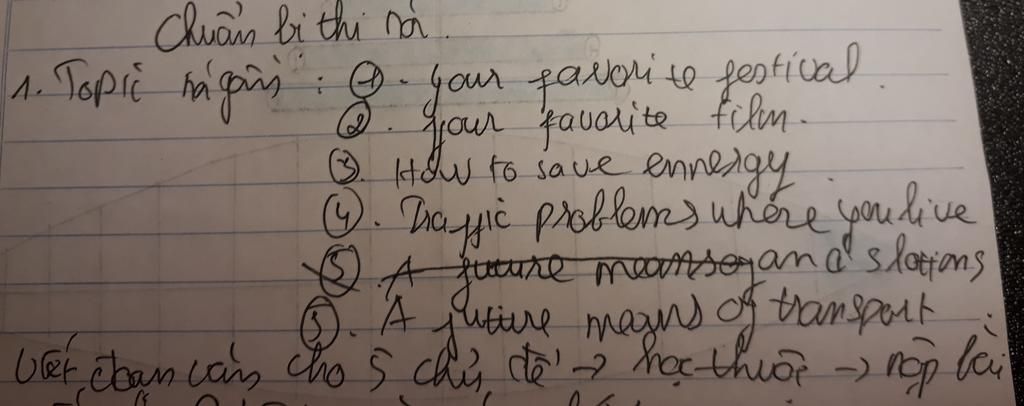 Chuẩn bị thi nói.
1. Topic : ① - your favorite festival.
②. your favorite film.
③. How to save ennergy.
④. Traffic problems where you live
⑤. A future means of and slotions
⑤. A future means of transport.
Viết đoạn văn cho 5 chủ đề → học thuộc → nộp bài